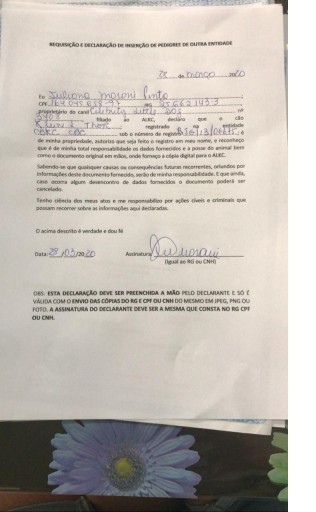 REQUISIÇÃO E DECLARAÇÃO DE INSERÇÃO DE PEDIGREE DE OUTRA ENTIDADE
28 de março 2020
Eu Juliana moroni Pinto
CPF RG
proprietário do canil nº
filiado ao ALKC, declaro que o cão
Thor registrado na entidade
CBKC sob o número de registro
de minha propriedade, autorizo que seja feito o registro em meu nome, e reconheço
que é de minha total responsabilidade os dados fornecidos e a posse do animal bem
como o documento original em mãos, onde forneço a cópia digital para o ALKC.
Sabendo-se que quaisquer causas ou consequências futuras recorrentes, oriundos por
informações deste documento fornecido, serão de minha responsabilidade. E que ainda,
caso ocorra algum desencontro de dados fornecidos o documento poderá ser
cancelado.
Tenho ciência dos meus atos e me responsabilizo por ações cíveis e criminais que
possam recorrer sobre as informações aqui declaradas.
O acima descrito é verdade e dou fé
Data: 28/03/2020 Assinatura
(Igual ao RG ou CNH)
OBS: ESTA DECLARAÇÃO DEVE SER PREENCHIDA A MÃO PELO DECLARANTE E SÓ É
VÁLIDA COM O ENVIO DAS CÓPIAS DO RG E CPF OU CNH DO MESMO EM JPEG, PNG OU
FOTO. A ASSINATURA DO DECLARANTE DEVE SER A MESMA QUE CONSTA NO RG CPF
OU CNH.